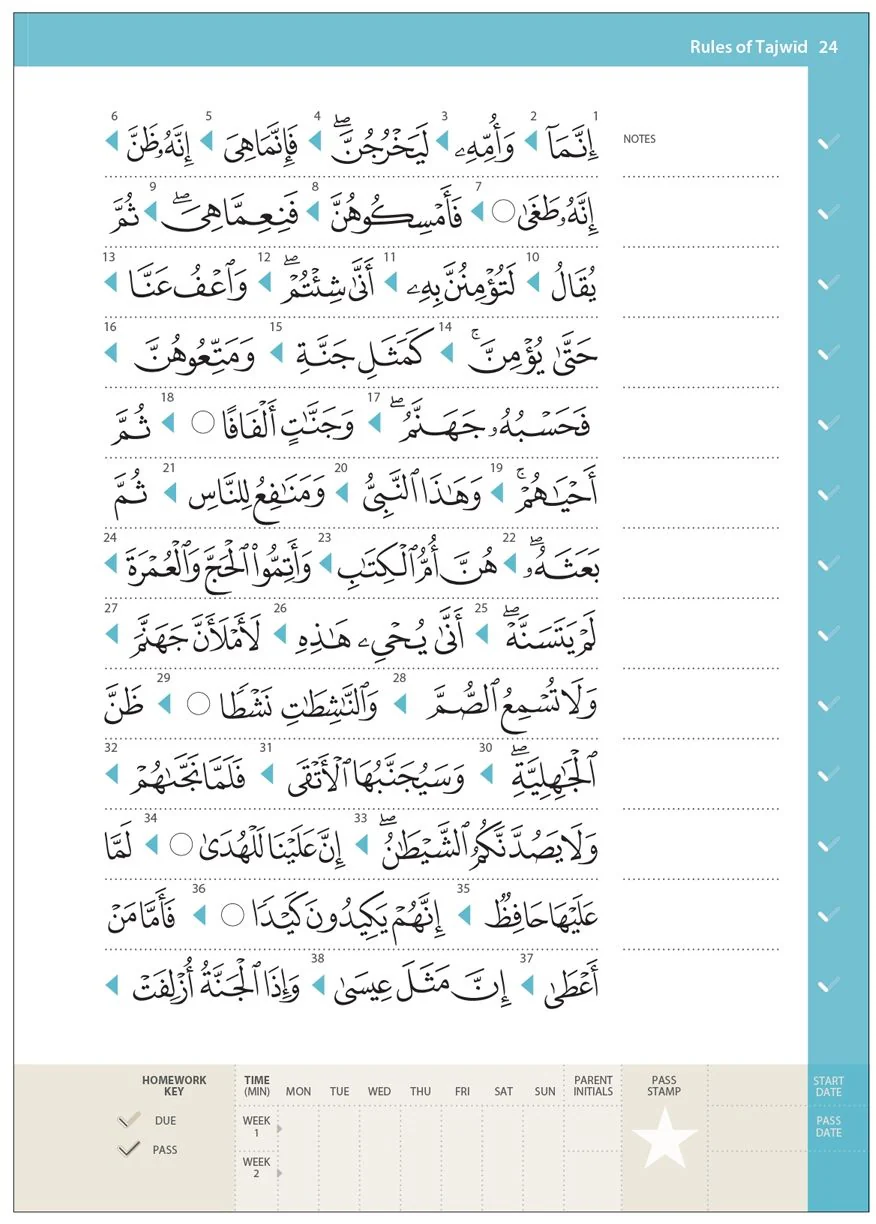 Rules of Tajwīd 24
NOTES
1 2 3 4 5 6
إِنَّمَآ ◀ وَأُمِّهِۦ ◀ لَيَخْرُجُنَّۖ ◀ فَإِنَّمَا هِىَ ◀ إِنَّهُۥ ظَنَّ ◀
7 8 9
إِنَّهُۥ طَغَىٰ ○ ◀ فَأَمْسِكُوهُنَّ ◀ فَنِعِمَّا هِىَۖ ◀ ثُمَّ
10 11 12 13
يُقَالُ ◀ لَتُؤْمِنُنَّ بِهِۦ ◀ أَنَّىٰ شِئْتُمْۖ ◀ وَٱعْفُ عَنَّا ◀
14 15 16
حَتَّىٰ يُؤْمِنَّۚ ◀ كَمَثَلِ جَنَّةِ ◀ وَمَتِّعُوهُنَّ ◀
17 18
فَحَسْبُهُۥ جَهَنَّمُۖ ◀ وَجَنَّٰتٍ أَلْفَافًا ○ ◀ ثُمَّ
19 20 21
أَحْيَاهُمْۚ ◀ وَهَٰذَا ٱلنَّبِىُّ ◀ وَمَنَٰفِعُ لِلنَّاسِ ◀ ثُمَّ
22 23 24
بَعَثَهُۥۖ ◀ هُنَّ أُمُّ ٱلْكِتَٰبِ ◀ وَأَتِمُّوا۟ ٱلْحَجَّ وَٱلْعُمْرَةَ ◀
25 26 27
لَمْ يَتَسَنَّهْۖ ◀ أَنَّىٰ يُحْىِۦ هَٰذِهِ ◀ لَأَمْلَأَنَّ جَهَنَّمَ ◀
28 29
وَلَا تُسْمِعُ ٱلصُّمَّ ◀ وَٱلنَّٰشِطَٰتِ نَشْطًا ○ ◀ ظَنَّ
30 31 32
ٱلْجَٰهِلِيَّةِۖ ◀ وَسَيُجَنَّبُهَا ٱلْأَتْقَى ◀ فَلَمَّا نَجَّىٰهُمْ ◀
33 34
وَلَا يَصُدَّنَّكُمُ ٱلشَّيْطَٰنُۖ ◀ إِنَّ عَلَيْنَا لَلْهُدَىٰ ○ ◀ لَمَّا
35 36
عَلَيْهَا حَافِظٌ ◀ إِنَّهُمْ يَكِيدُونَ كَيْدًا ○ ◀ فَأَمَّا مَنْ
37 38
أَعْطَىٰ ◀ إِنَّ مَثَلَ عِيسَىٰ ◀ وَإِذَا ٱلْجَنَّةُ أُزْلِفَتْ ◀
HOMEWORK KEY
DUE
PASS
TIME (MIN) MON TUE WED THU FRI SAT SUN
WEEK 1
WEEK 2
PARENT INITIALS
PASS STAMP
START DATE
PASS DATE